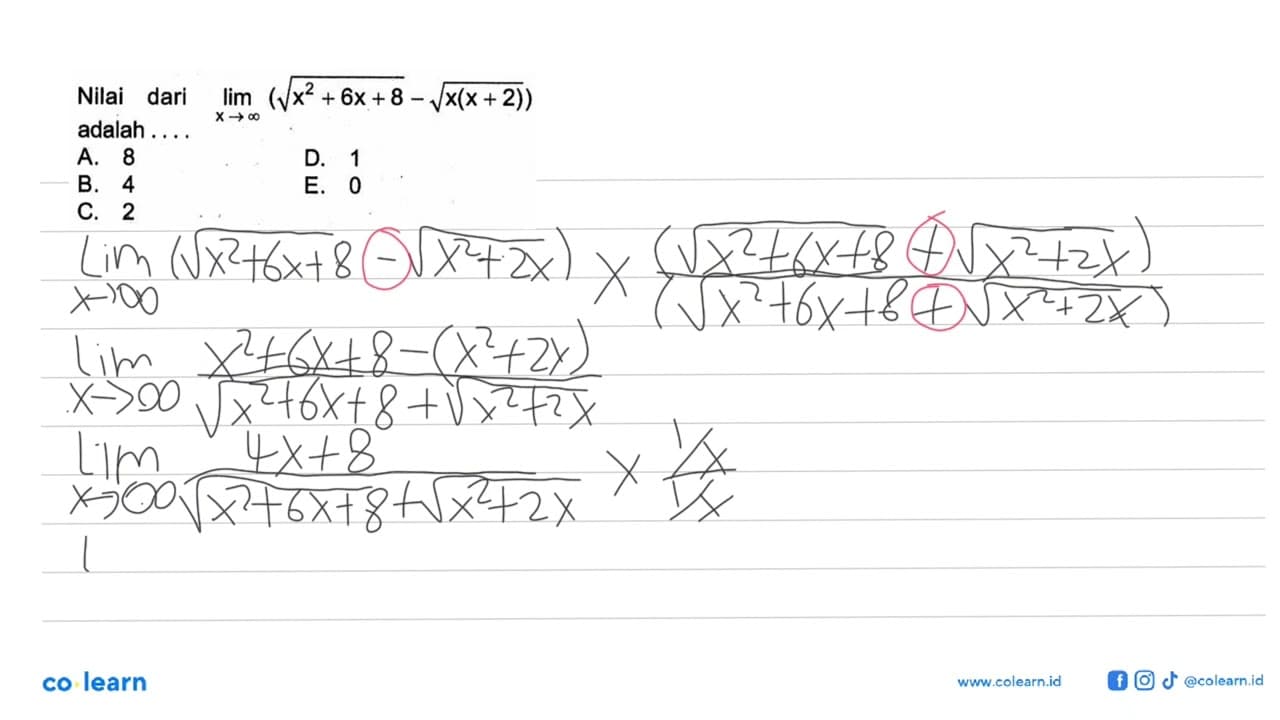 Nilai dari lim x→∞ (√(x² + 6x + 8) − √(x(x + 2)))
adalah . . . .
A. 8 D. 1
B. 4 E. 0
C. 2
Lim x→∞ (√(x²+6x+8) − √(x²+2x)) × (√(x²+6x+8) + √(x²+2x)) / (√(x²+6x+8) + √(x²+2x))
Lim x→∞ x²+6x+8−(x²+2x) / √(x²+6x+8) + √(x²+2x)
Lim x→∞ 4x+8 / √(x²+6x+8) + √(x²+2x) × 1/x / 1/x
co·learn www.colearn.id @colearn.id